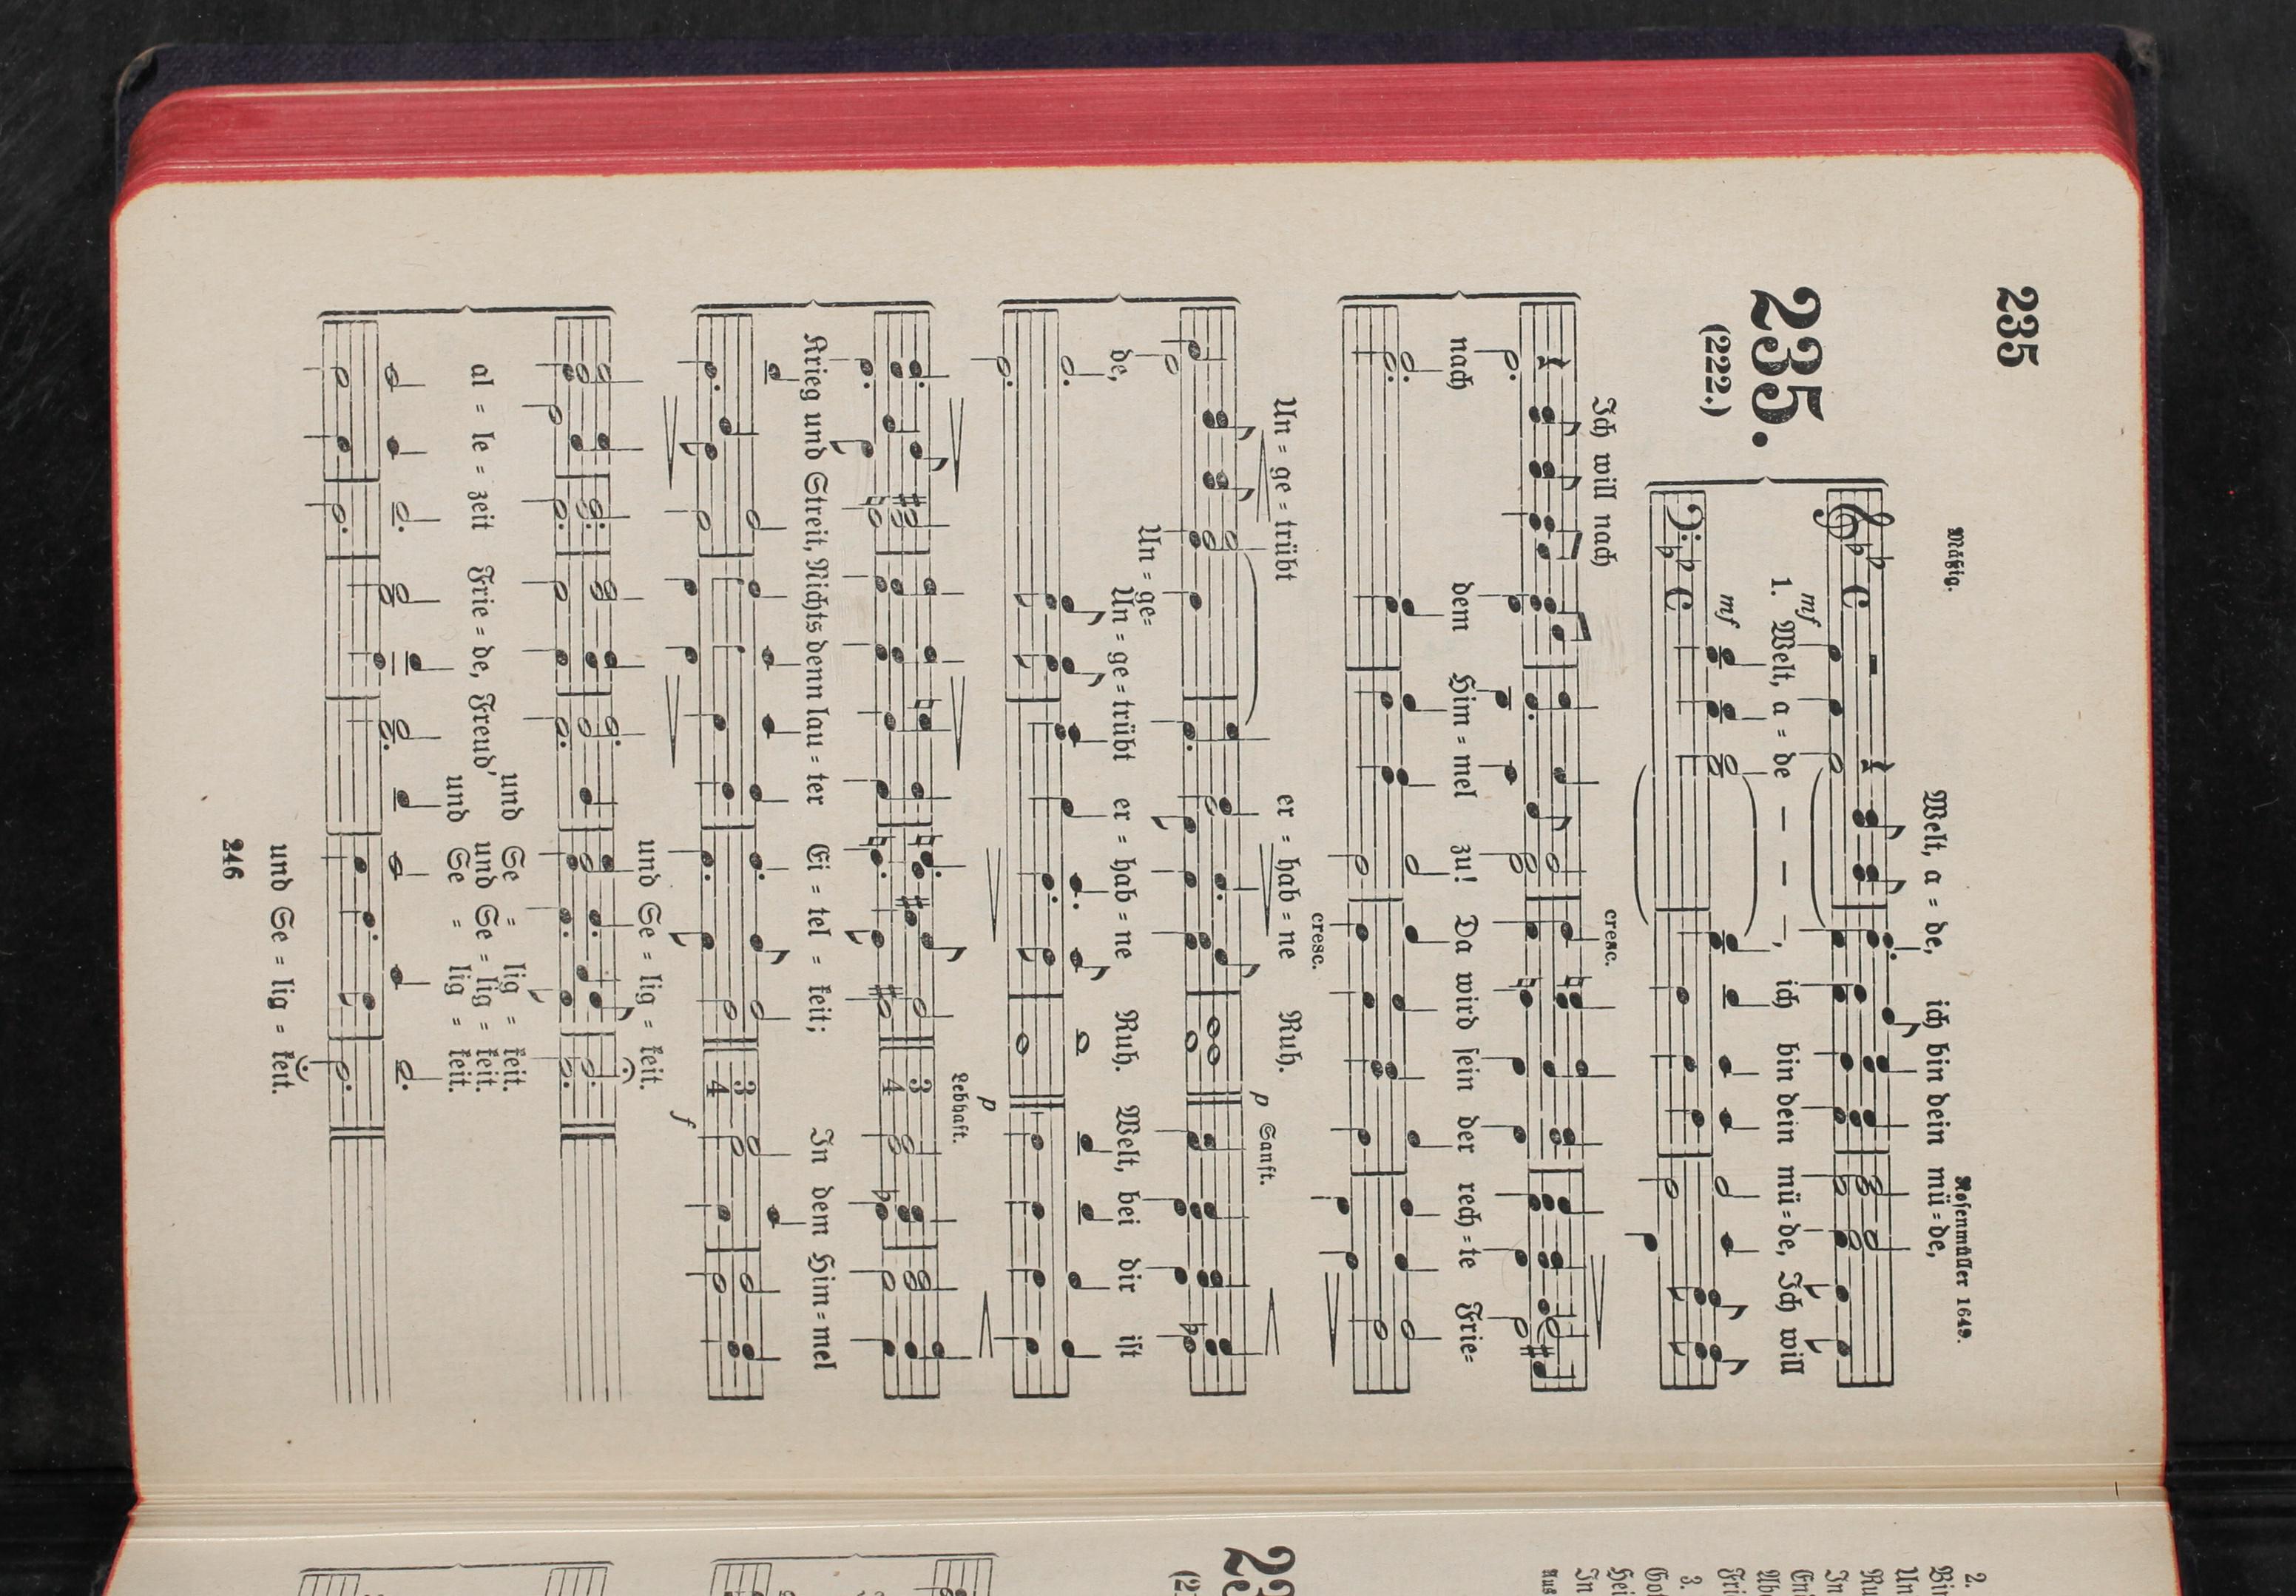 235
Mäßig.
Rosenmüller 1649.
235.
(222.)
Welt, a = de, ich bin dein mü = de,
mf
1. Welt, a = de — — —, ich bin dein mü = de, Ich will
mf
Ich will nach
cresc.
nach dem Him = mel zu! Da wird sein der rech = te Frie=
cresc.
Un = ge = trübt er = hab = ne Ruh.
p Sanft.
Un = ge=
de, Un = ge = trübt er = hab = ne Ruh. Welt, bei dir ist
p
Lebhaft.
Krieg und Streit, Nichts denn lau = ter Ei = tel = keit; In dem Him = mel
f
und Se = lig = keit.
und Se = lig = keit.
al = le = zeit Frie = de, Freud' und Se = lig = keit.
und Se = lig = keit.
und Se = lig = keit.
246
2.
Bin
Un
Ru
In
Ew
Abe
Fri
3.
Got
Hei
In
Aus